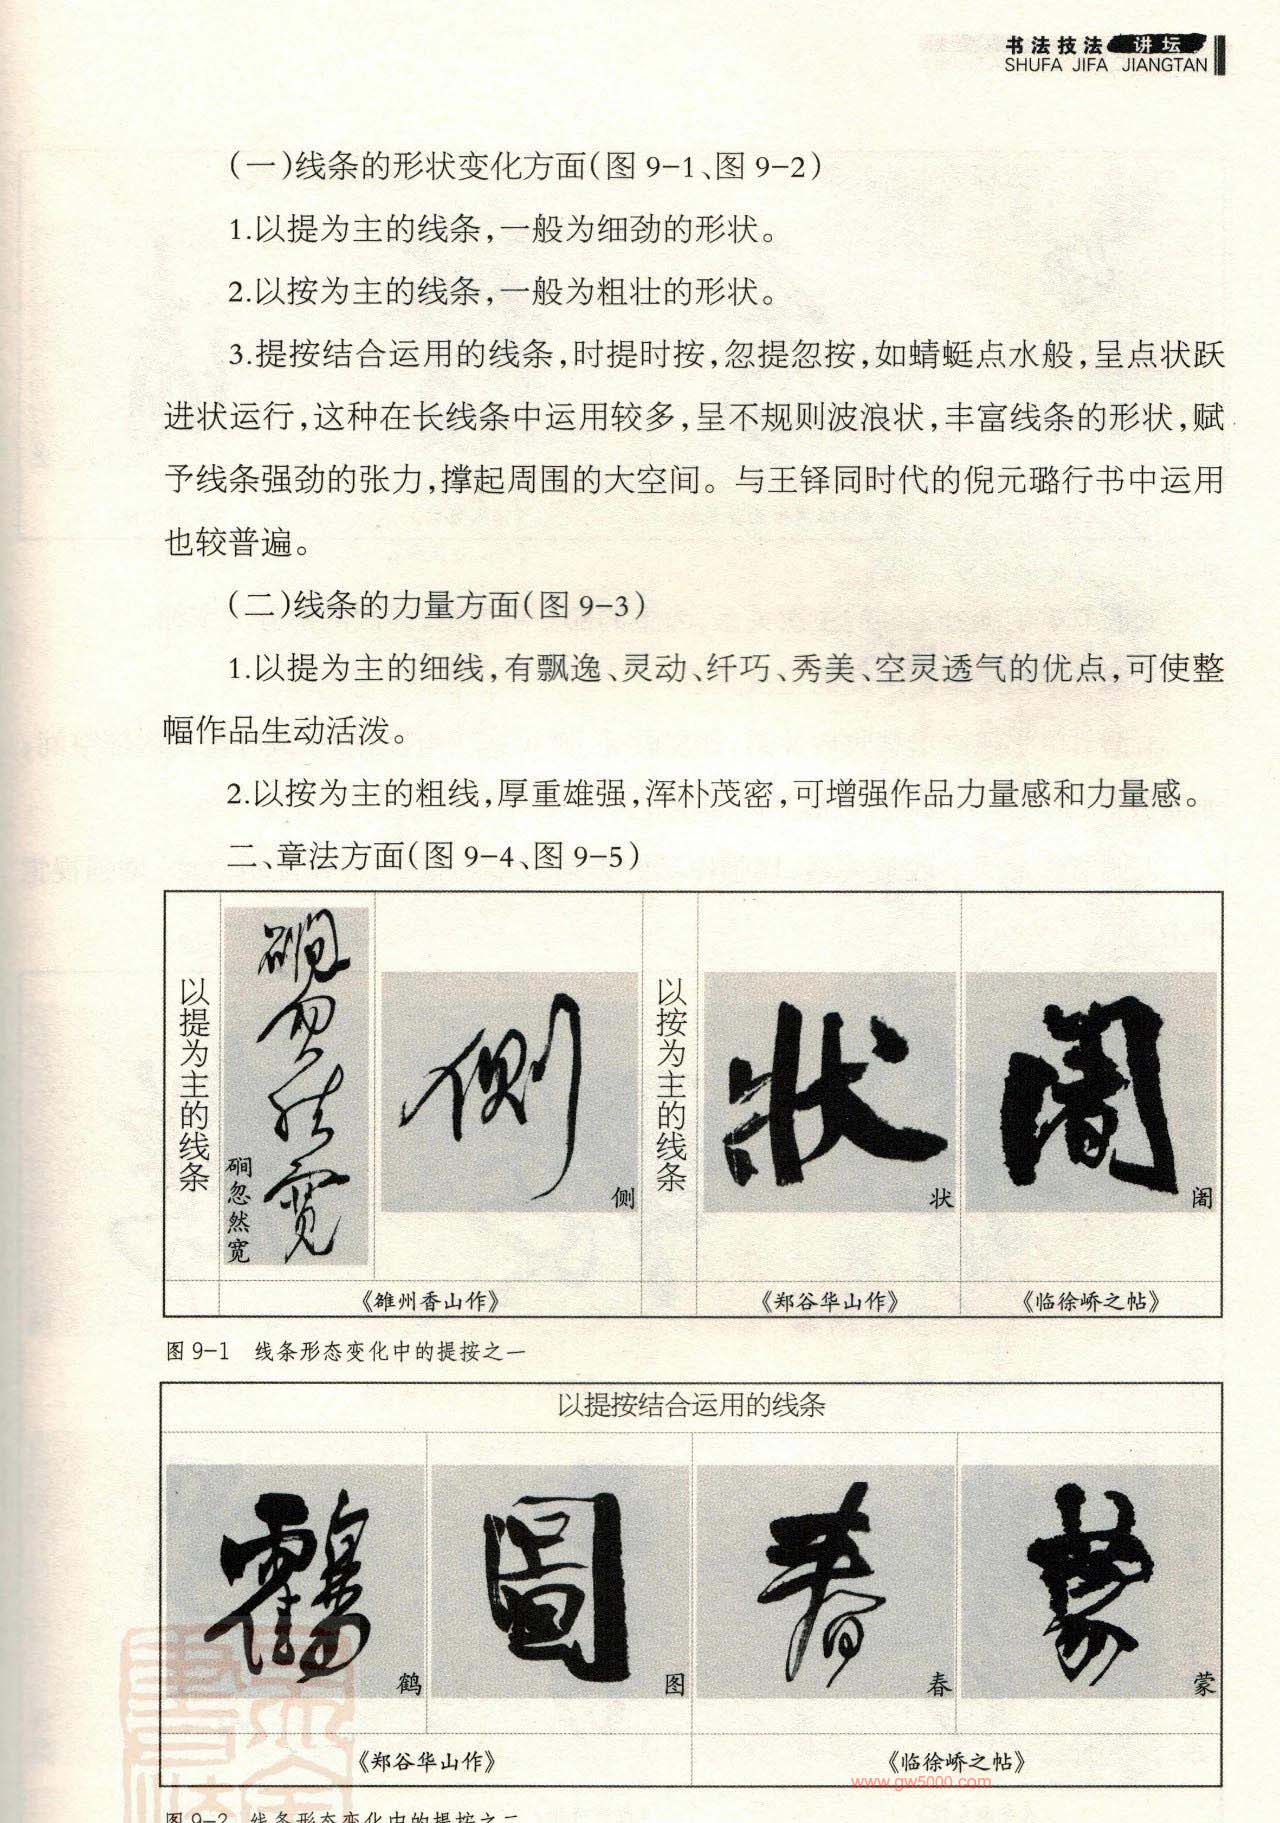 书法技法 讲坛
SHUFA JIFA JIANGTAN
(一)线条的形状变化方面(图9-1、图9-2)
1.以提为主的线条,一般为细劲的形状。
2.以按为主的线条,一般为粗壮的形状。
3.提按结合运用的线条,时提时按,忽提忽按,如蜻蜓点水般,呈点状跃
进状运行,这种在长线条中运用较多,呈不规则波浪状,丰富线条的形状,赋
予线条强劲的张力,撑起周围的大空间。与王铎同时代的倪元璐行书中运用
也较普遍。
(二)线条的力量方面(图9-3)
1.以提为主的细线,有飘逸、灵动、纤巧、秀美、空灵透气的优点,可使整
幅作品生动活泼。
2.以按为主的粗线,厚重雄强,浑朴茂密,可增强作品力量感和力量感。
二、章法方面(图9-4、图9-5)
以提为主的线条
磵忽然宽
侧
以按为主的线条
状
阇
《雒州香山作》
《郑谷华山作》
《临徐峤之帖》
图9-1 线条形态变化中的提按之一
以提按结合运用的线条
鹤
图
春
蒙
《郑谷华山作》
《临徐峤之帖》
www.gw5000.com
图9-2 线条形态变化中的提按之二